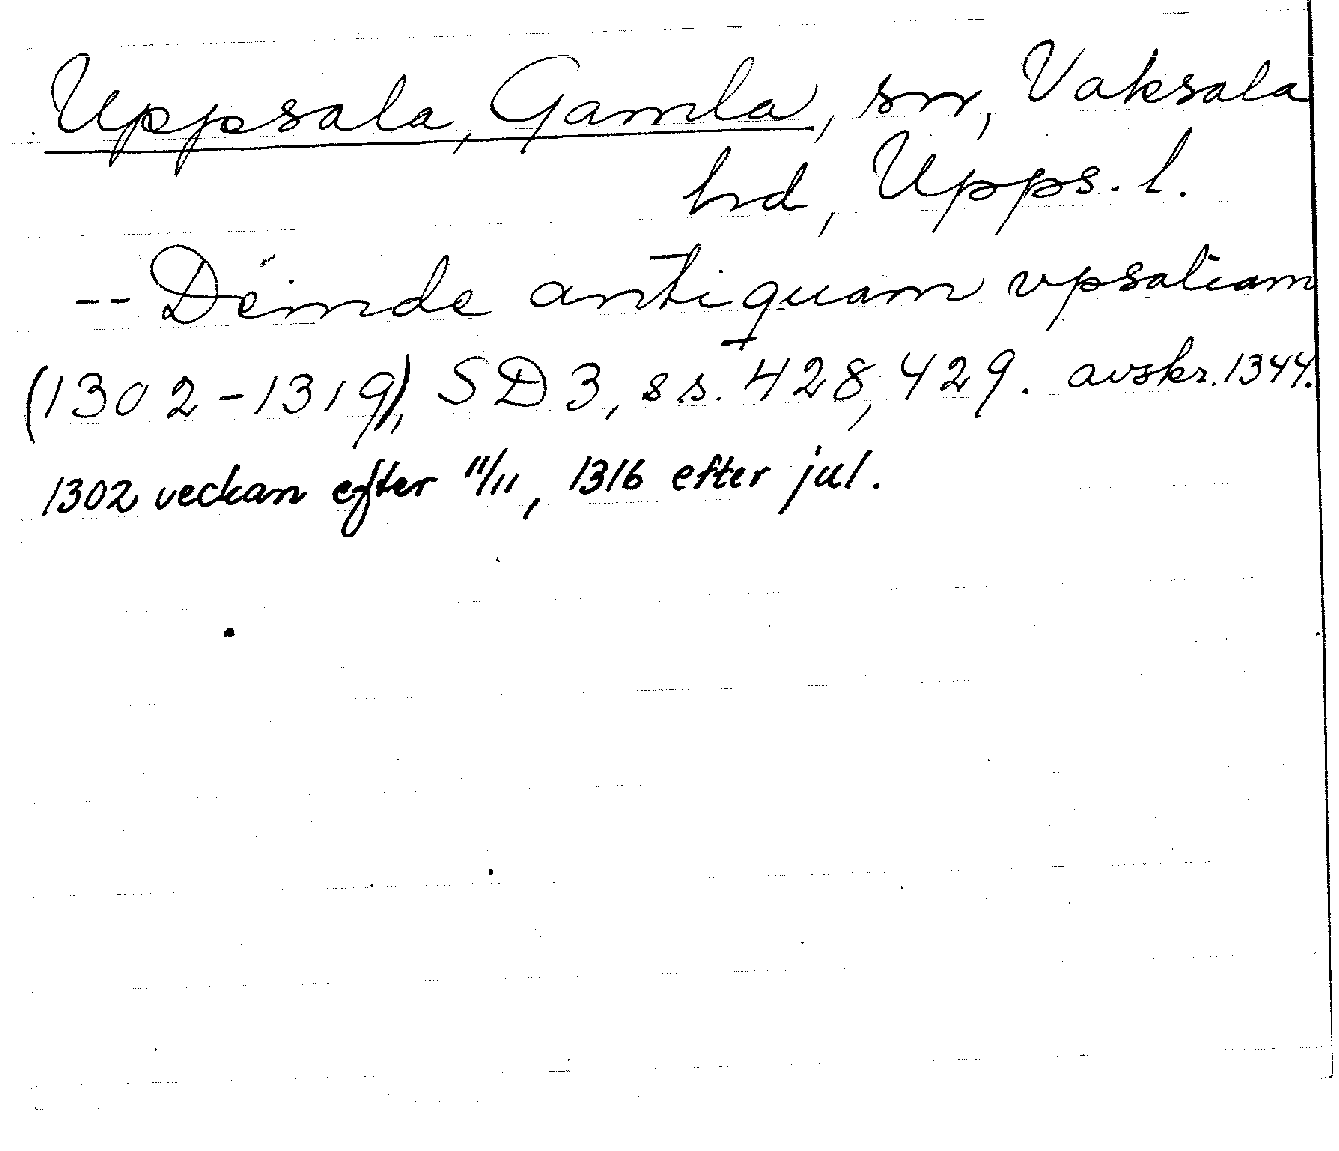 Uppsala, Gamla, sn, Vaksala
hd, Upps. l.
-- Deinde antiquam vpsaliam
(1302-1319), SD 3, ss. 428, 429. avskr. 1344.
1302 veckan efter 11/11, 1316 efter jul.